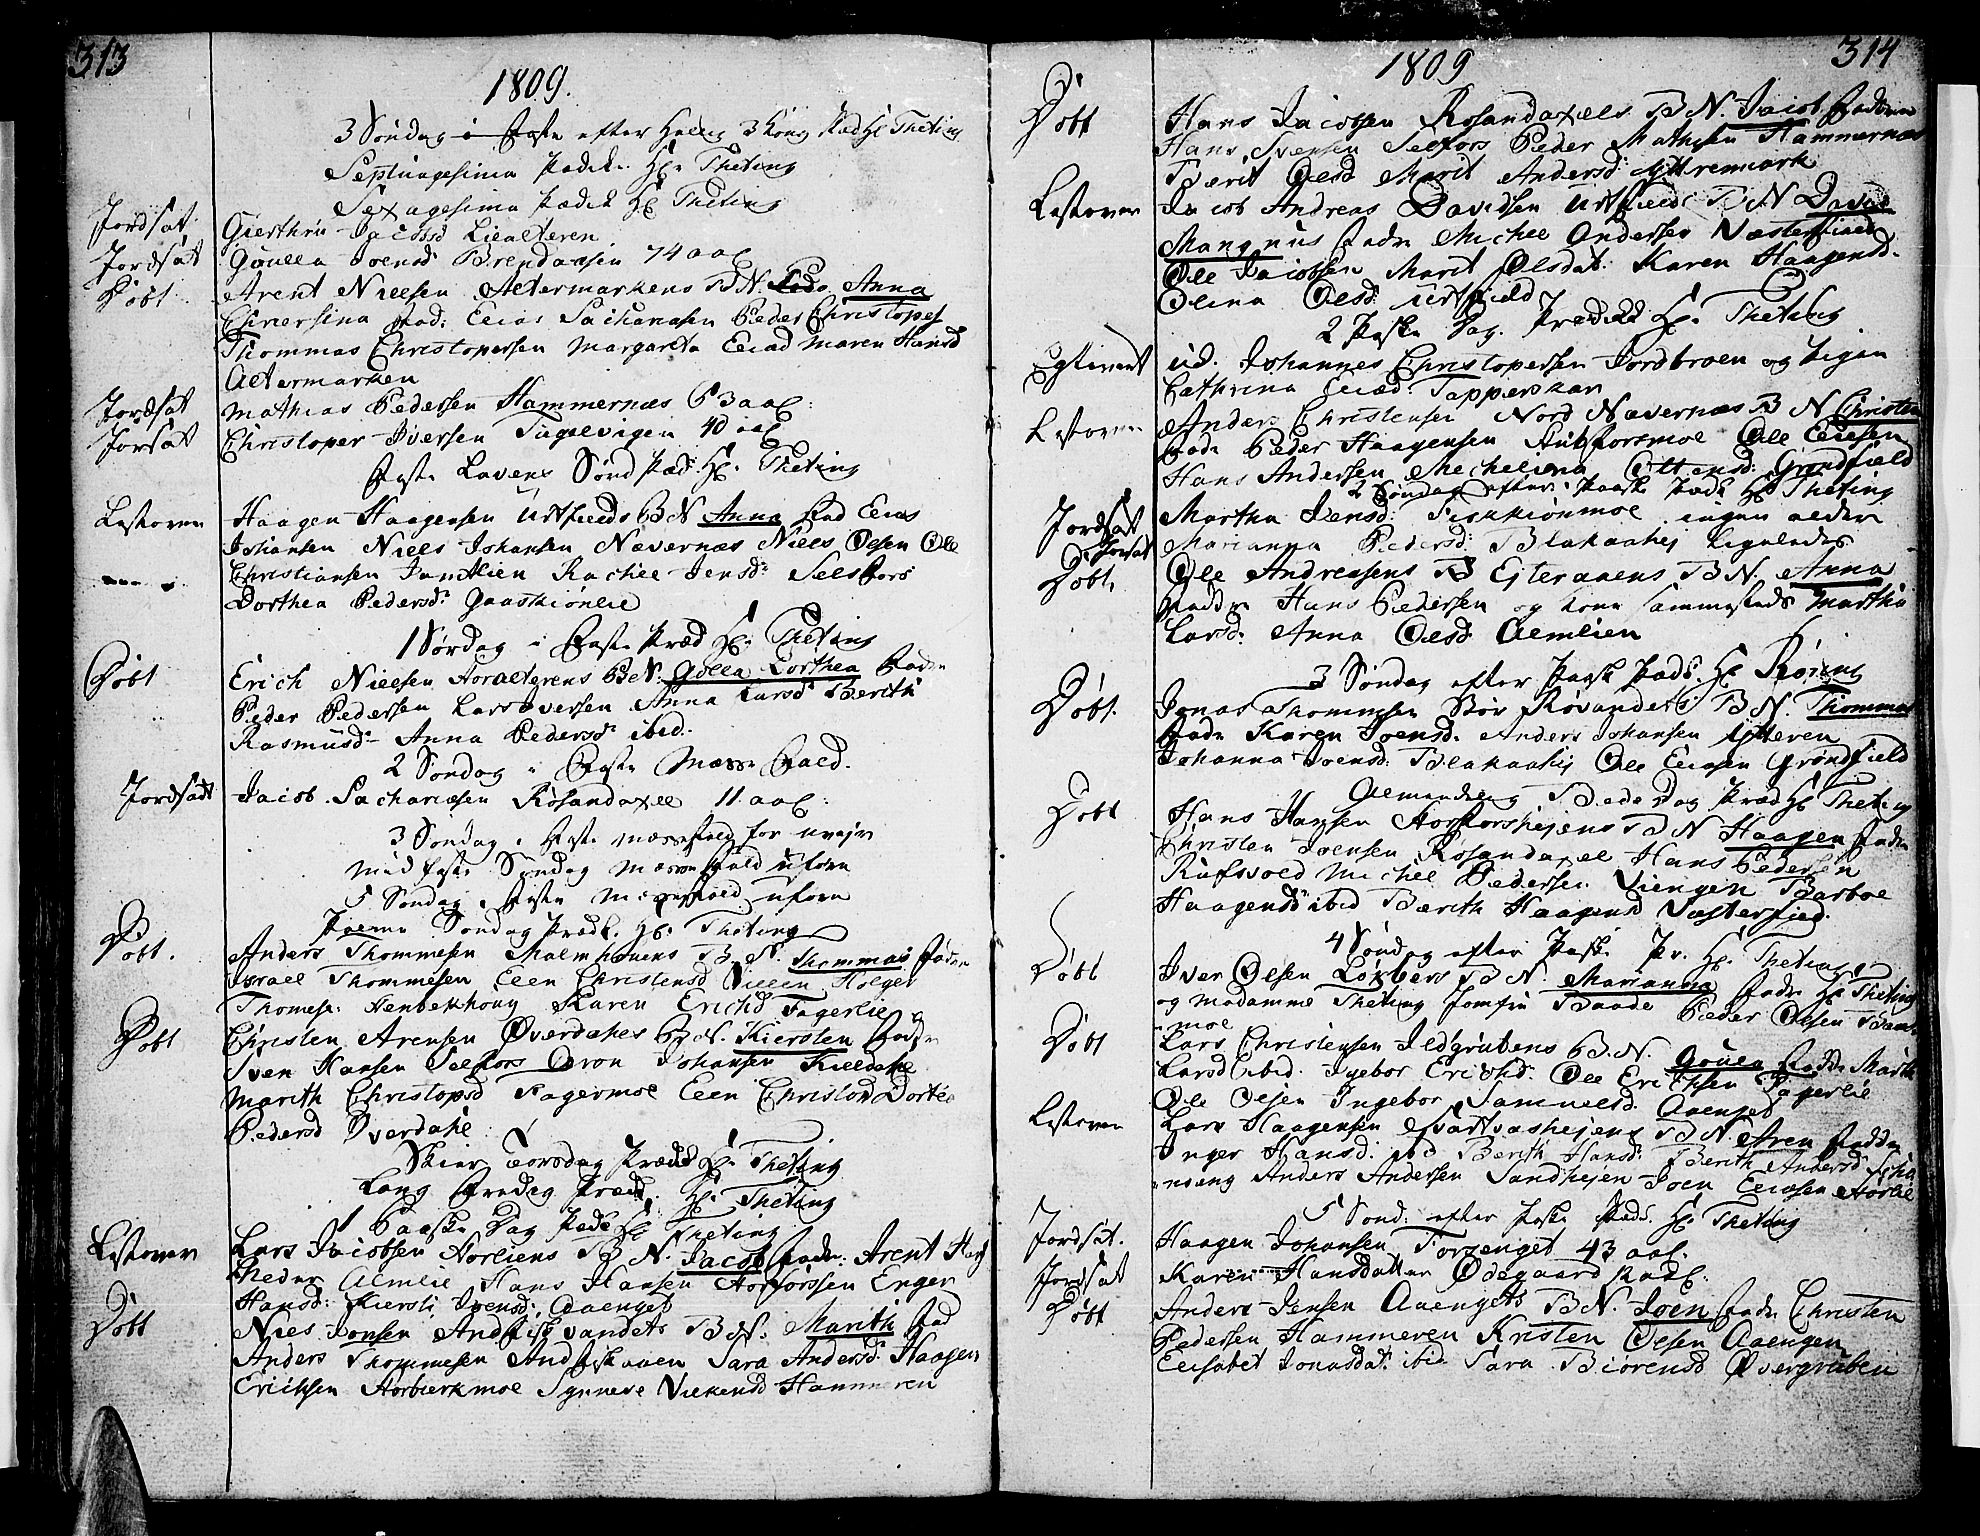 313
1809.
3 Søndag i Faste efter Hellig 3 Kong Præd Hr Theting
Septuagesima Prædik Hr. Theting
Sexagesima Prædik Hr Theting
Jordsat Gierthru Jacobsd
Jordsat Goulla Joensd 74 aar
Døbt Arent Nielsen Altermarkens B N. Anna
Chiersina fad: Elias Sachariasen Peder Christopes
Thommas Christopersen Margareta Eliad Maren Hansd
Altermarken
Jordsat Mathias Pedersen Hammernæs 63 aar
Jorsat Christoper Iversen Tagelvigen 40 aar
Faste Lavens Sønd Præd. Hr. Theting
Haagen Haagensen Urtfields B N Anna fad Elias
Johansen Niels Johansen Nævernæs Niels Olsen Ole
Christiansen Jamtlien Rachel Jensd: Selsfors
Dorthea Pedersd: Gaaskiønlie
1 Sørdag i Faste Præd Hr. Theting
Døbt Erich Nielsen B N. Golla Lorthea Fadr
Peder Pedersen Lars Iversen Anna Larsd Berith
Rasmusd Anna Pedersd ibid.
2 Søndag i Faste Messe Fald.
Jordsadt Jacob Sachariesen Røsandaxel 11 aar:
3 Søndag i Faste messefald for uvejr
Mid faste Søndag messefald uforn
5 Søndag i Faste Messefald uforn
Palme Søndag Prædk. Hr. Theting
Døbt. Anders Thommesen Malmhougens B. N. Thommas fadr
Israel Thommesen Elen Christensd Villem Holger
Thomese. Karen Erichd Fagerlie
Døbt Christen Arensen Øverdahls B. N. Kiersten Fadr
Sven Hansen Selfors Aron Johansen Kieldahl
Marith Christopsd Fagermoe Elen Christond Dortea
Pedersd Øverdahl
Skier Torsdag Præd Hr. Theting
Lang Fredag Præd. Hr. Theting
1 Paaske Dag Præd Hr Theting
Lars Jacobsen B N. Jacob fadr: Arent
Almlie Hans Hansen Enger
Hansd: Kiersti Joensd: Aaenget
Døbt Niels Jonsen Andfiskvandets B N: Marith fad
Anders Thommesen Andfiskaaen Sara Andersd: Haagen
Erichsen Synneve Hammeren
1809 314
Døbt Hans Jacobsen Røsandaxels B N. Jacob Faderne
Hans Svensen Selfors Peder Mathisen Hammernæs
Berit Olsd Marit Andersd: Ytteremark
Jacob Andreas Davidsen Urtfield B N David
Mangnus fadr Michel Andersen Vesterfield
Ole Jacobsen Marit Olsdat: Karen Haagensd.
Olina Olsd: Urtfield
2 Paske Dag. Prædik Hr. Theting
Egteviet ud. Johannes Christopersen Jordbroen og Pigen
Cathrina Eliæd: Tapperskar
Anders Christensen Nord Nævernæs B N Christen
fadr Peder Haagensen Ole Elisen
Hans Andersen Mecheliena Ottensd: Grøndfield
2 Søndag efter Paaske Præd Hr Theting
Jordsat Martha Jensd: Fiskkiønmoe ingen alder
D: Jorsat Marianna Pedersd: Blakaahej
Døbt. Ole Andreasens Ejteraaens B N. Anna
fadde Hans Pedersen og Kone sammesteds Martha
Larsd: Anna Olsd Almlien
3 Søndag efter Paask Præd: Hr
Døbt. Jonas Thommesen Stor Røvandets B N. Thommas
fadr Karen Joensd. Anders Johansen Ytteren
Johanna Joensd. Blakaahej Ole Elisen Grøndfield
Almindelig Bededag Præd Hr Theting
Døbt Hans Hansen B N Haagen fadr
Christen Joensen Røsandaxel Hans Pedersen
Rufsvold Michel Pedersen Viengen Barboe
Haagensd ibid Berith Haagensd Vesterfield.
4 Søndag efter Paask Pr. Hr. Theting
Døbt Iver Olsen B N. Marianna fadr Hr Theting
og Madamme Theting Jomfru Baade Peder Olsen
moe
Døbt Lars Christensen Ildgrubens B. N. Goulla fadde Marith
Larsd ibid. Ingebor Erichsd. Ole Erichsen Fagerlie
Ole Olsen Ingebor Samuelsd. Aaenget
Lars Haagensen Svartvashejens B N. Aren fadde
Inger Hansd: ibid Berith Hansd: Berith Andersd
Anders Andersen Sandhejen Joen Eliasen
5 Sønd: efter Paske Præd. Hr. Theting
Jordsat. Haagen Johansen Torvenget 43 aar.
Jordsat Karen Hansdatter Ødegaard
Døbt Anders Jensen Aaengets B N. Joen fadr Christen
Pedersen Hammeren Kristen Olsen Aaengen
Elisabet Jonasdat: ibid Sara Biørensd Øvergruben